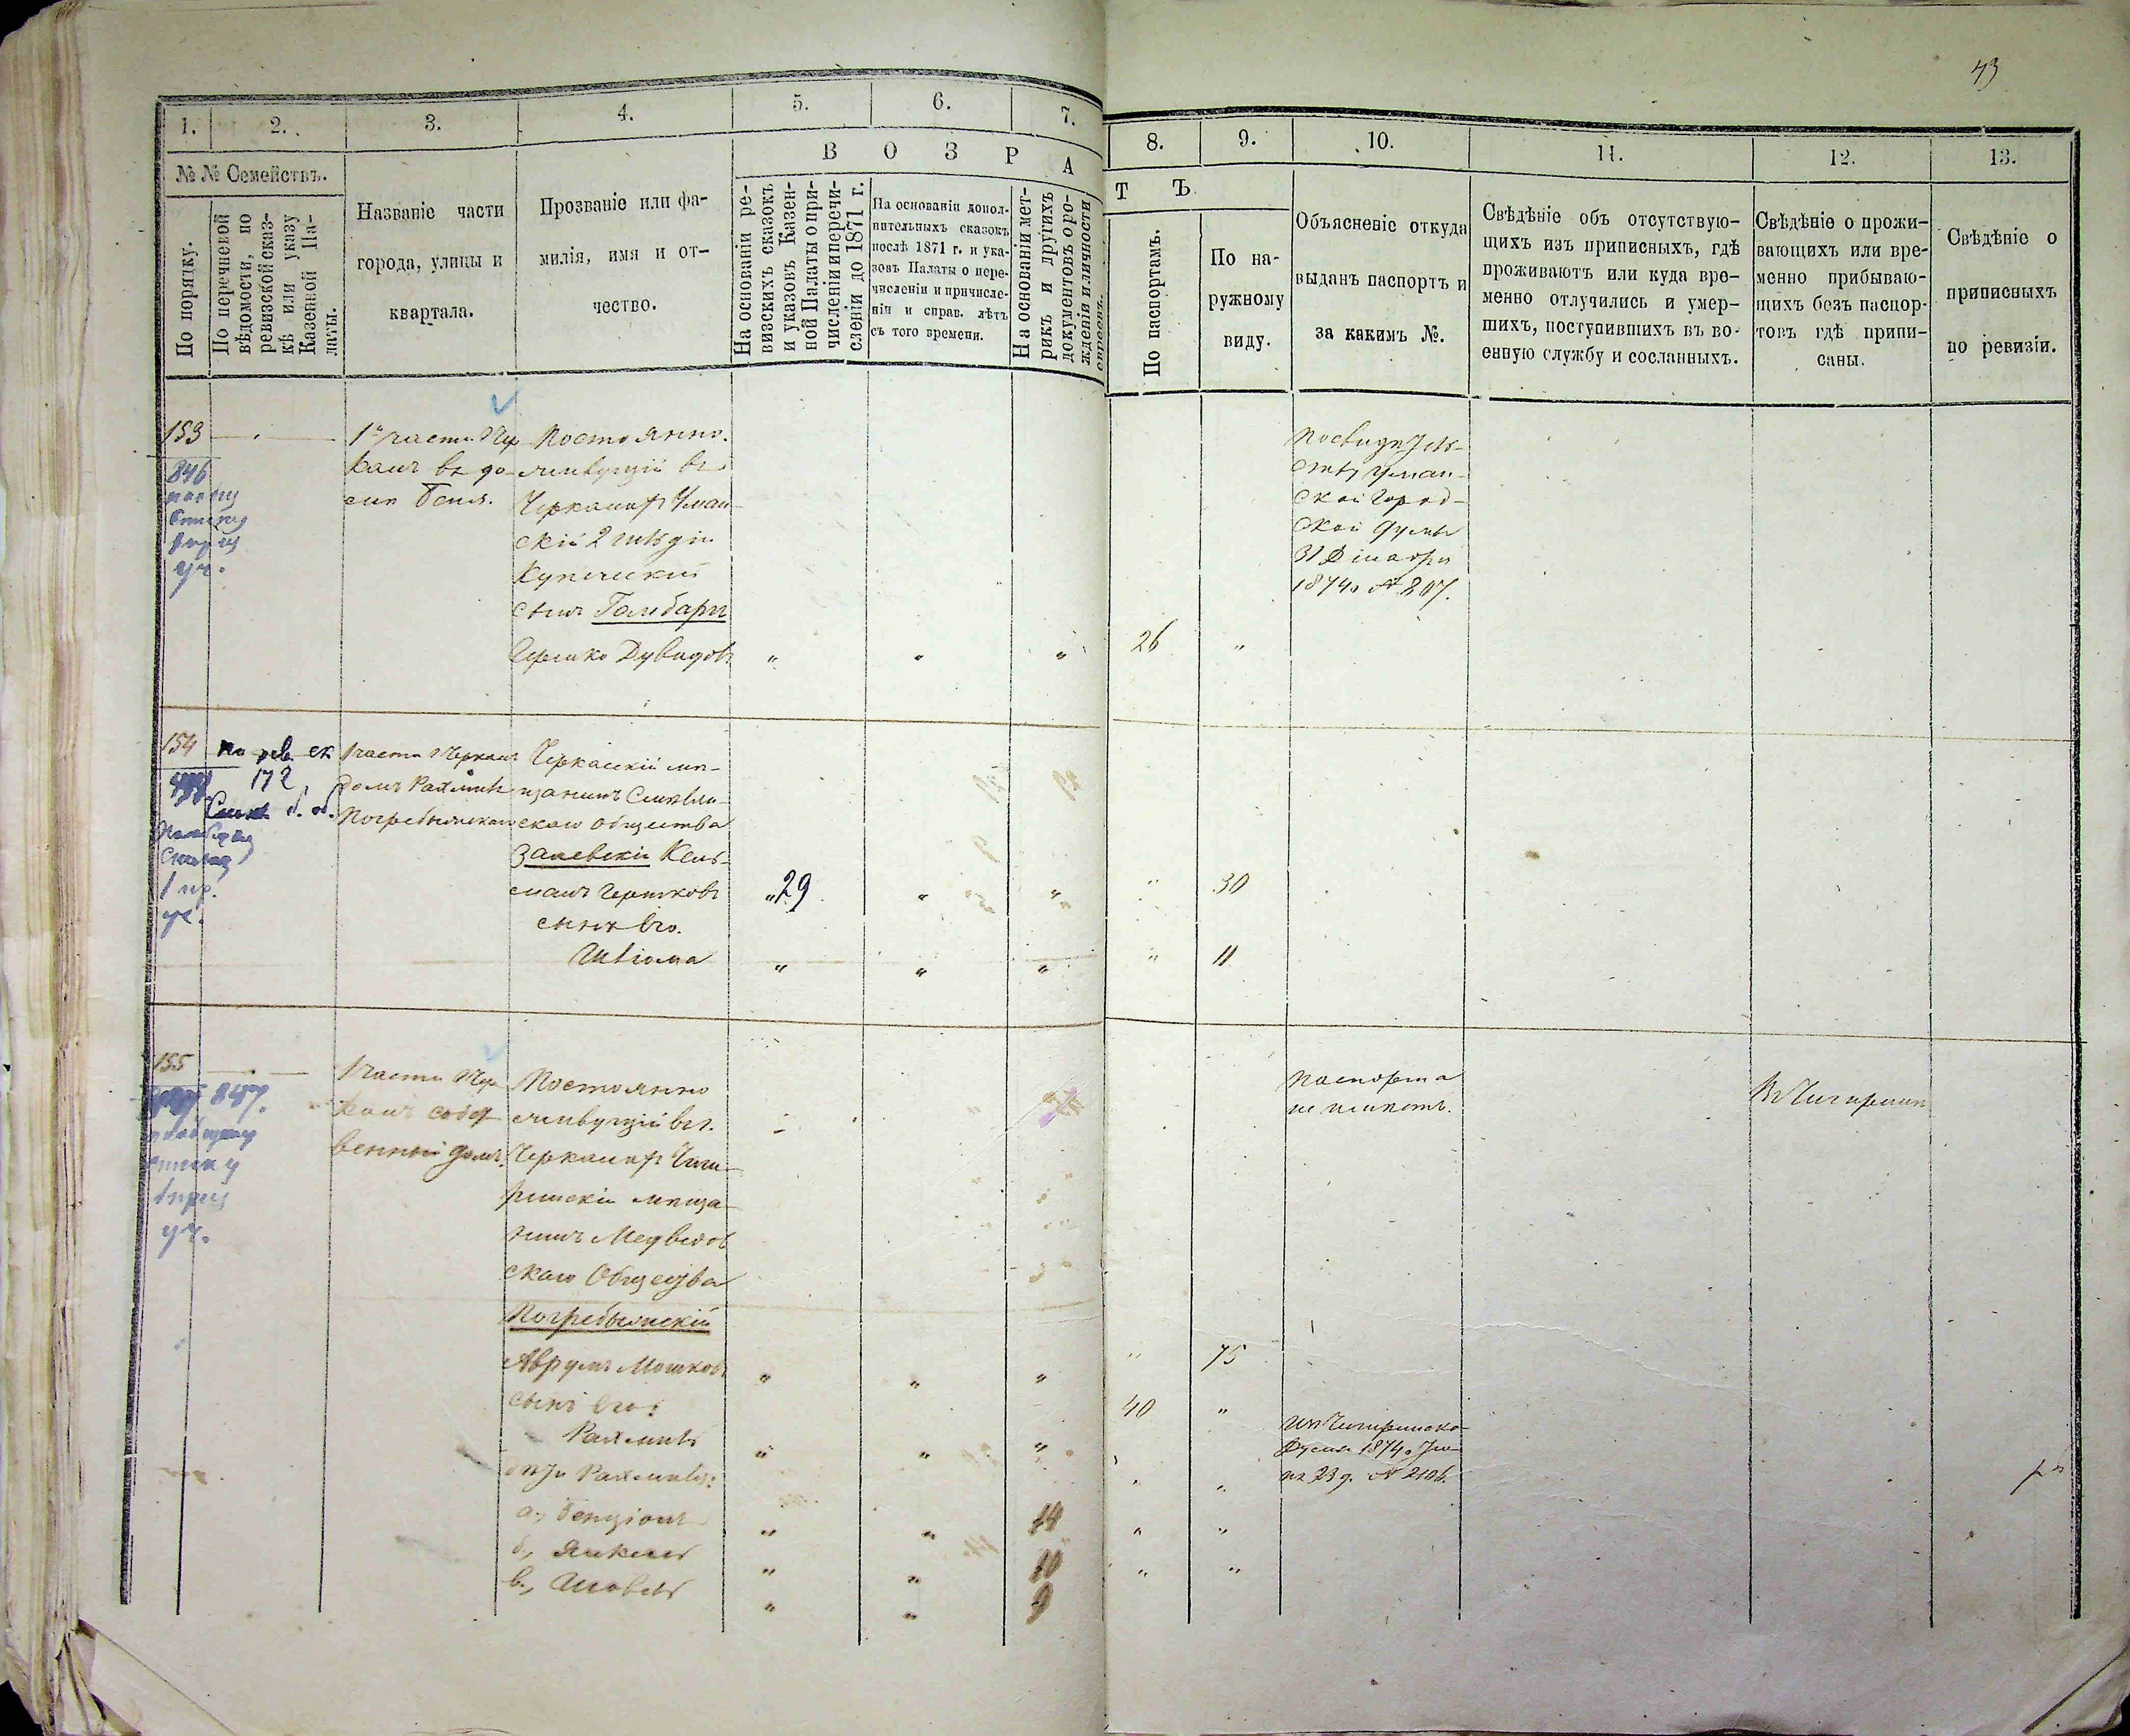 43
1.
2.
3.
4.
5.
6.
7.
8.
9.
10.
11.
12.
13.
№ № Семействъ.
По порядку.
По перечневой
вѣдомости, по
ревизской сказ-
кѣ или указу
Казенной Па-
латы.
Названіе части
города, улицы и
квартала.
Прозваніе или фа-
милія, имя и от-
чество.
В О З Р А
Т Ъ
На основаніи ре-
визскихъ сказокъ
и указовъ Казен-
ной Палаты о при-
численіи и перечи-
сленіи до 1871 г.
На основаніи допол-
нительныхъ сказокъ
послѣ 1871 г. и ука-
зовъ Палаты о пере-
численіи и причисле-
ніи и справ. лѣтъ
съ того времени.
На основаніи мет-
рикъ и другихъ
документовъ о ро-
жденіе и личности
По паспортамъ.
По на-
ружному
виду.
Объясненіе откуда
выданъ паспортъ и
за какимъ №.
Свѣдѣніе объ отсутствую-
щихъ изъ приписныхъ, гдѣ
проживаютъ или куда вре-
менно отлучились и умер-
шихъ, поступившихъ въ во-
енную службу и сосланныхъ.
Свѣдѣніе о прожи-
вающихъ или вре-
менно прибываю-
щихъ безъ паспор-
товъ гдѣ припи-
саны.
Свѣдѣніе о
приписныхъ
по ревизіи.
153
846
уч.
1й части Чер
касъ въ до-
Постоянно
живущій въ
Черкасахъ Уман-
скій 2 гильдіи
Купеческій
сынъ Гамбаръ
Гершко Дувидовъ " " " 26 "
Посвидѣтель-
ству Уман-
ской Город-
ской Думы
31 Декабря
1874 № 807.
154
по рев ск
172
1 пр.
уч.
1 части Черкасъ
домъ Рахмиля
Погребыскаго
Черкаскій мѣ-
щанинъ Смелян-
скаго общества
Залевскій Кель-
манъ Гершковъ "29 " " " 30
сынъ его.
" " " " 11
155
847.
уч.
1 части Чер
касъ собст
венный домъ.
Постоянно
живущій въ г.
Черкасахъ Чиги-
ринскій мѣща-
нинъ Медведов
скаго Общества
Погребыскій
Аврумъ Мошковъ " " " " 75
сынъ его:
Рахмиль " " " 40 "
дѣти Рахмиля:
а, Бенціонъ " " 14 " "
б, Янкель " " 10 " "
в, " " 9 " "
Паспорта
не имѣетъ.
Въ Чигиринѣ
Изъ Чигиринской
Думы 1874
23 д. № 2106.